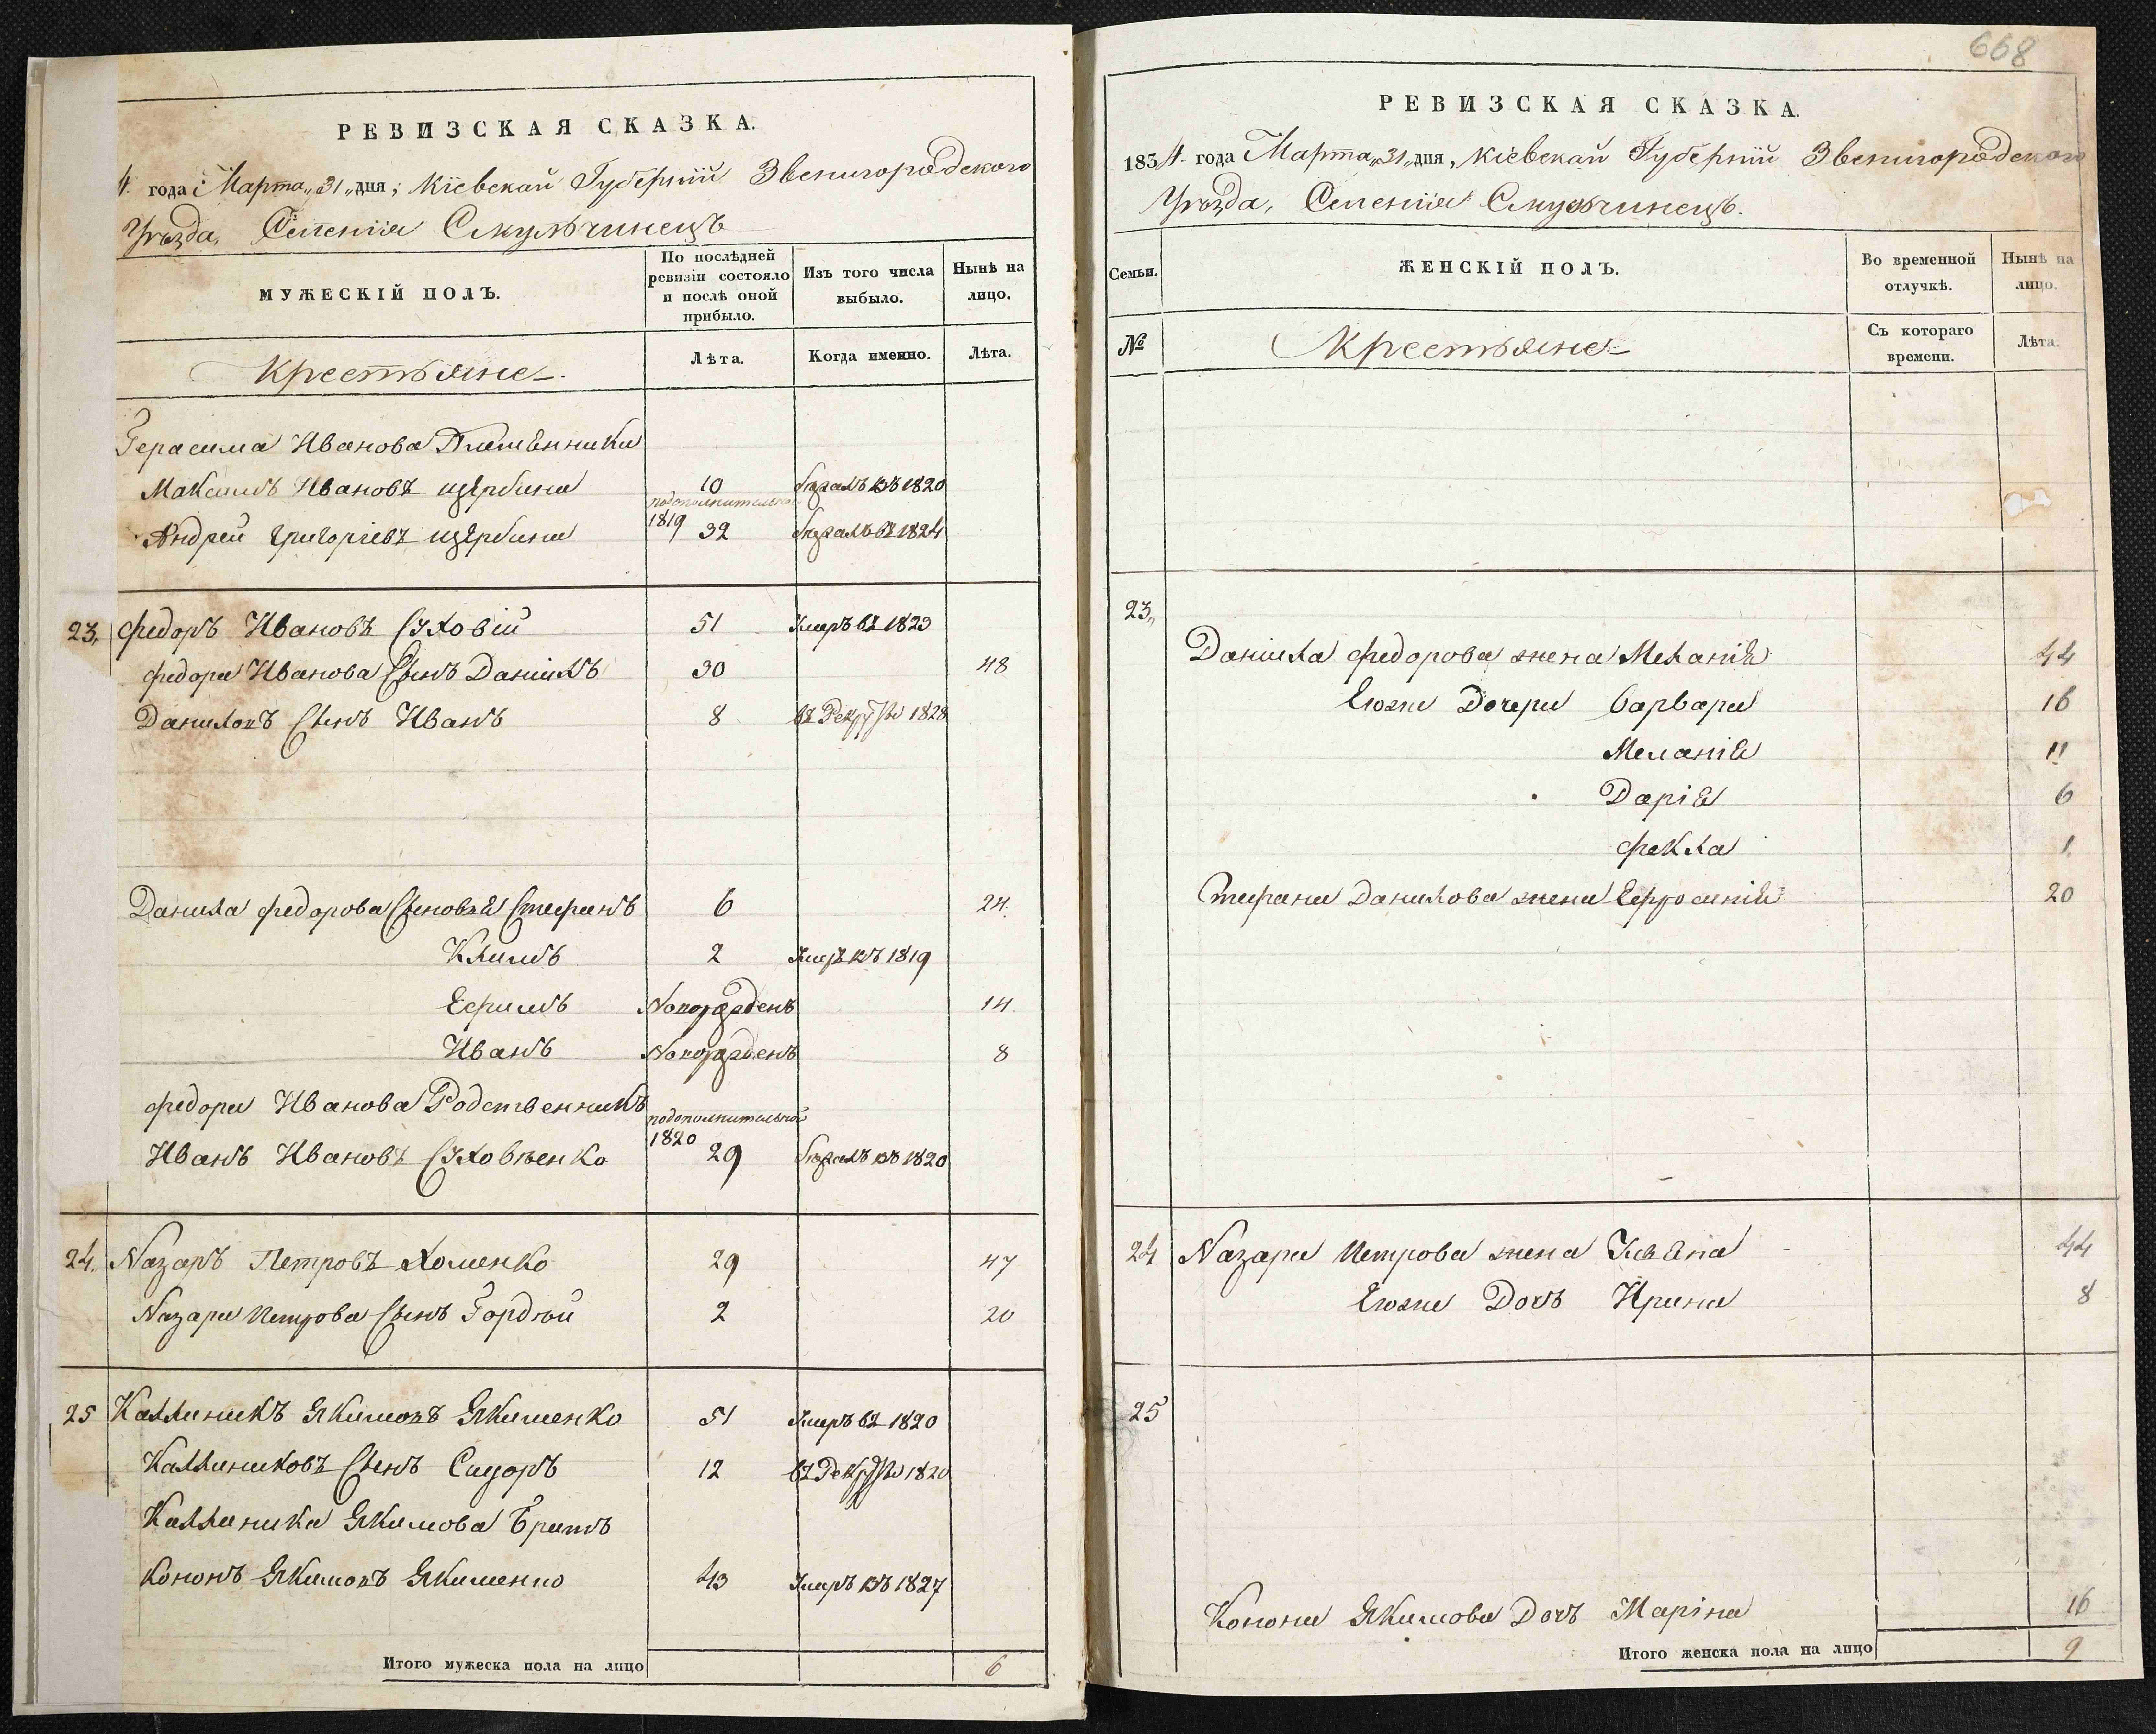 РЕВИЗСКАЯ СКАЗКА.
4 года Марта „31„ дня, Кіевской Губерніи Звенигородского
Уѣзда, Селенія Скулѣчинецъ
МУЖЕСКІЙ ПОЛЪ.
По послѣдней ревизіи состояло и послѣ оной прибыло.
Изъ того числа выбыло.
Нынѣ на лицо.
Крестьяне
Лѣта.
Когда именно.
Лѣта.
Герасима Иванова Племѣнники
Максимъ Ивановъ щербина 10 бѣжалъ въ 1820
подополнительной
Андрей Григоріевъ щербина 1819 32 бѣжалъ въ 1824
23, Федоръ Ивановъ Сѫховій 51 Умеръ въ 1823
Федора Иванова Сынъ Даніилъ 30 48
Даниловъ Сынъ Иванъ 8 въ Рекруты 1828
Данила Федорова Сыновья Стефанъ 6 24
Климъ 2 Умеръ въ 1819
Ефимъ Новорожденъ 14
Иванъ Новорожденъ 8
Федора Иванова Родственникъ
подополнительной
Иванъ Ивановъ 1820 29 бѣжалъ въ 1820
24. Назаръ Петровъ Хоменко 29 47
Назара Петрова Сынъ Гордѣй 2 20
25 Каллиникъ Якимовъ Якименко 51 Умеръ въ 1820
Каллиниковъ Сынъ Сидоръ 12 въ Рекруты 1820
Каллиника Якимова Братъ
Кононъ Якимовъ Якименко 43 Умеръ въ 1827
Итого мужеска пола на лицо 6
668
РЕВИЗСКАЯ СКАЗКА.
1834 года Марта „31„ дня, Кіевской Губерніи Звенигородского
Уѣзда, Селенія Скулѣчинецъ.
Семьи.
ЖЕНСКІЙ ПОЛЪ.
Во временной отлучкѣ.
Нынѣ на лицо.
№
Крестьяне
Съ котораго времени.
Лѣта.
23,
Даніила Федорова жена Меланія 44
Егоже Дочери Варвара 16
Меланія 11
Дарія 6
Фекла 1
Стефана Данилова жена Ефросинія 20
24 Назара Петрова жена Уліана 44
Егоже Дочь Ирина 8
25
Конона Якимова Дочь Маріна 16
Итого женска пола на лицо 9